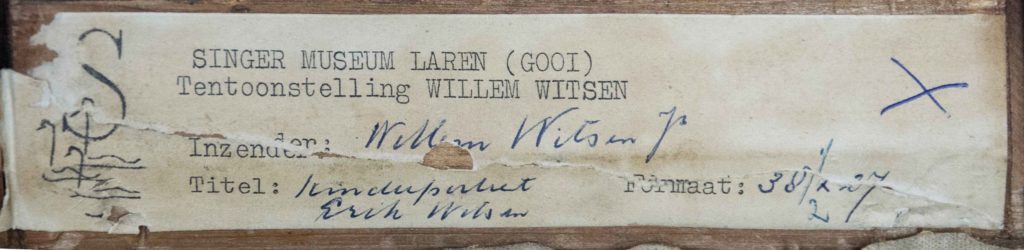 SINGER MUSEUM LAREN (GOOI)
Tentoonstelling WILLEM WITSEN
Inzender: Willem Witsen Jr
Titel: Kinderportret Formaat: 38 1/2 x 27
Erik Witsen